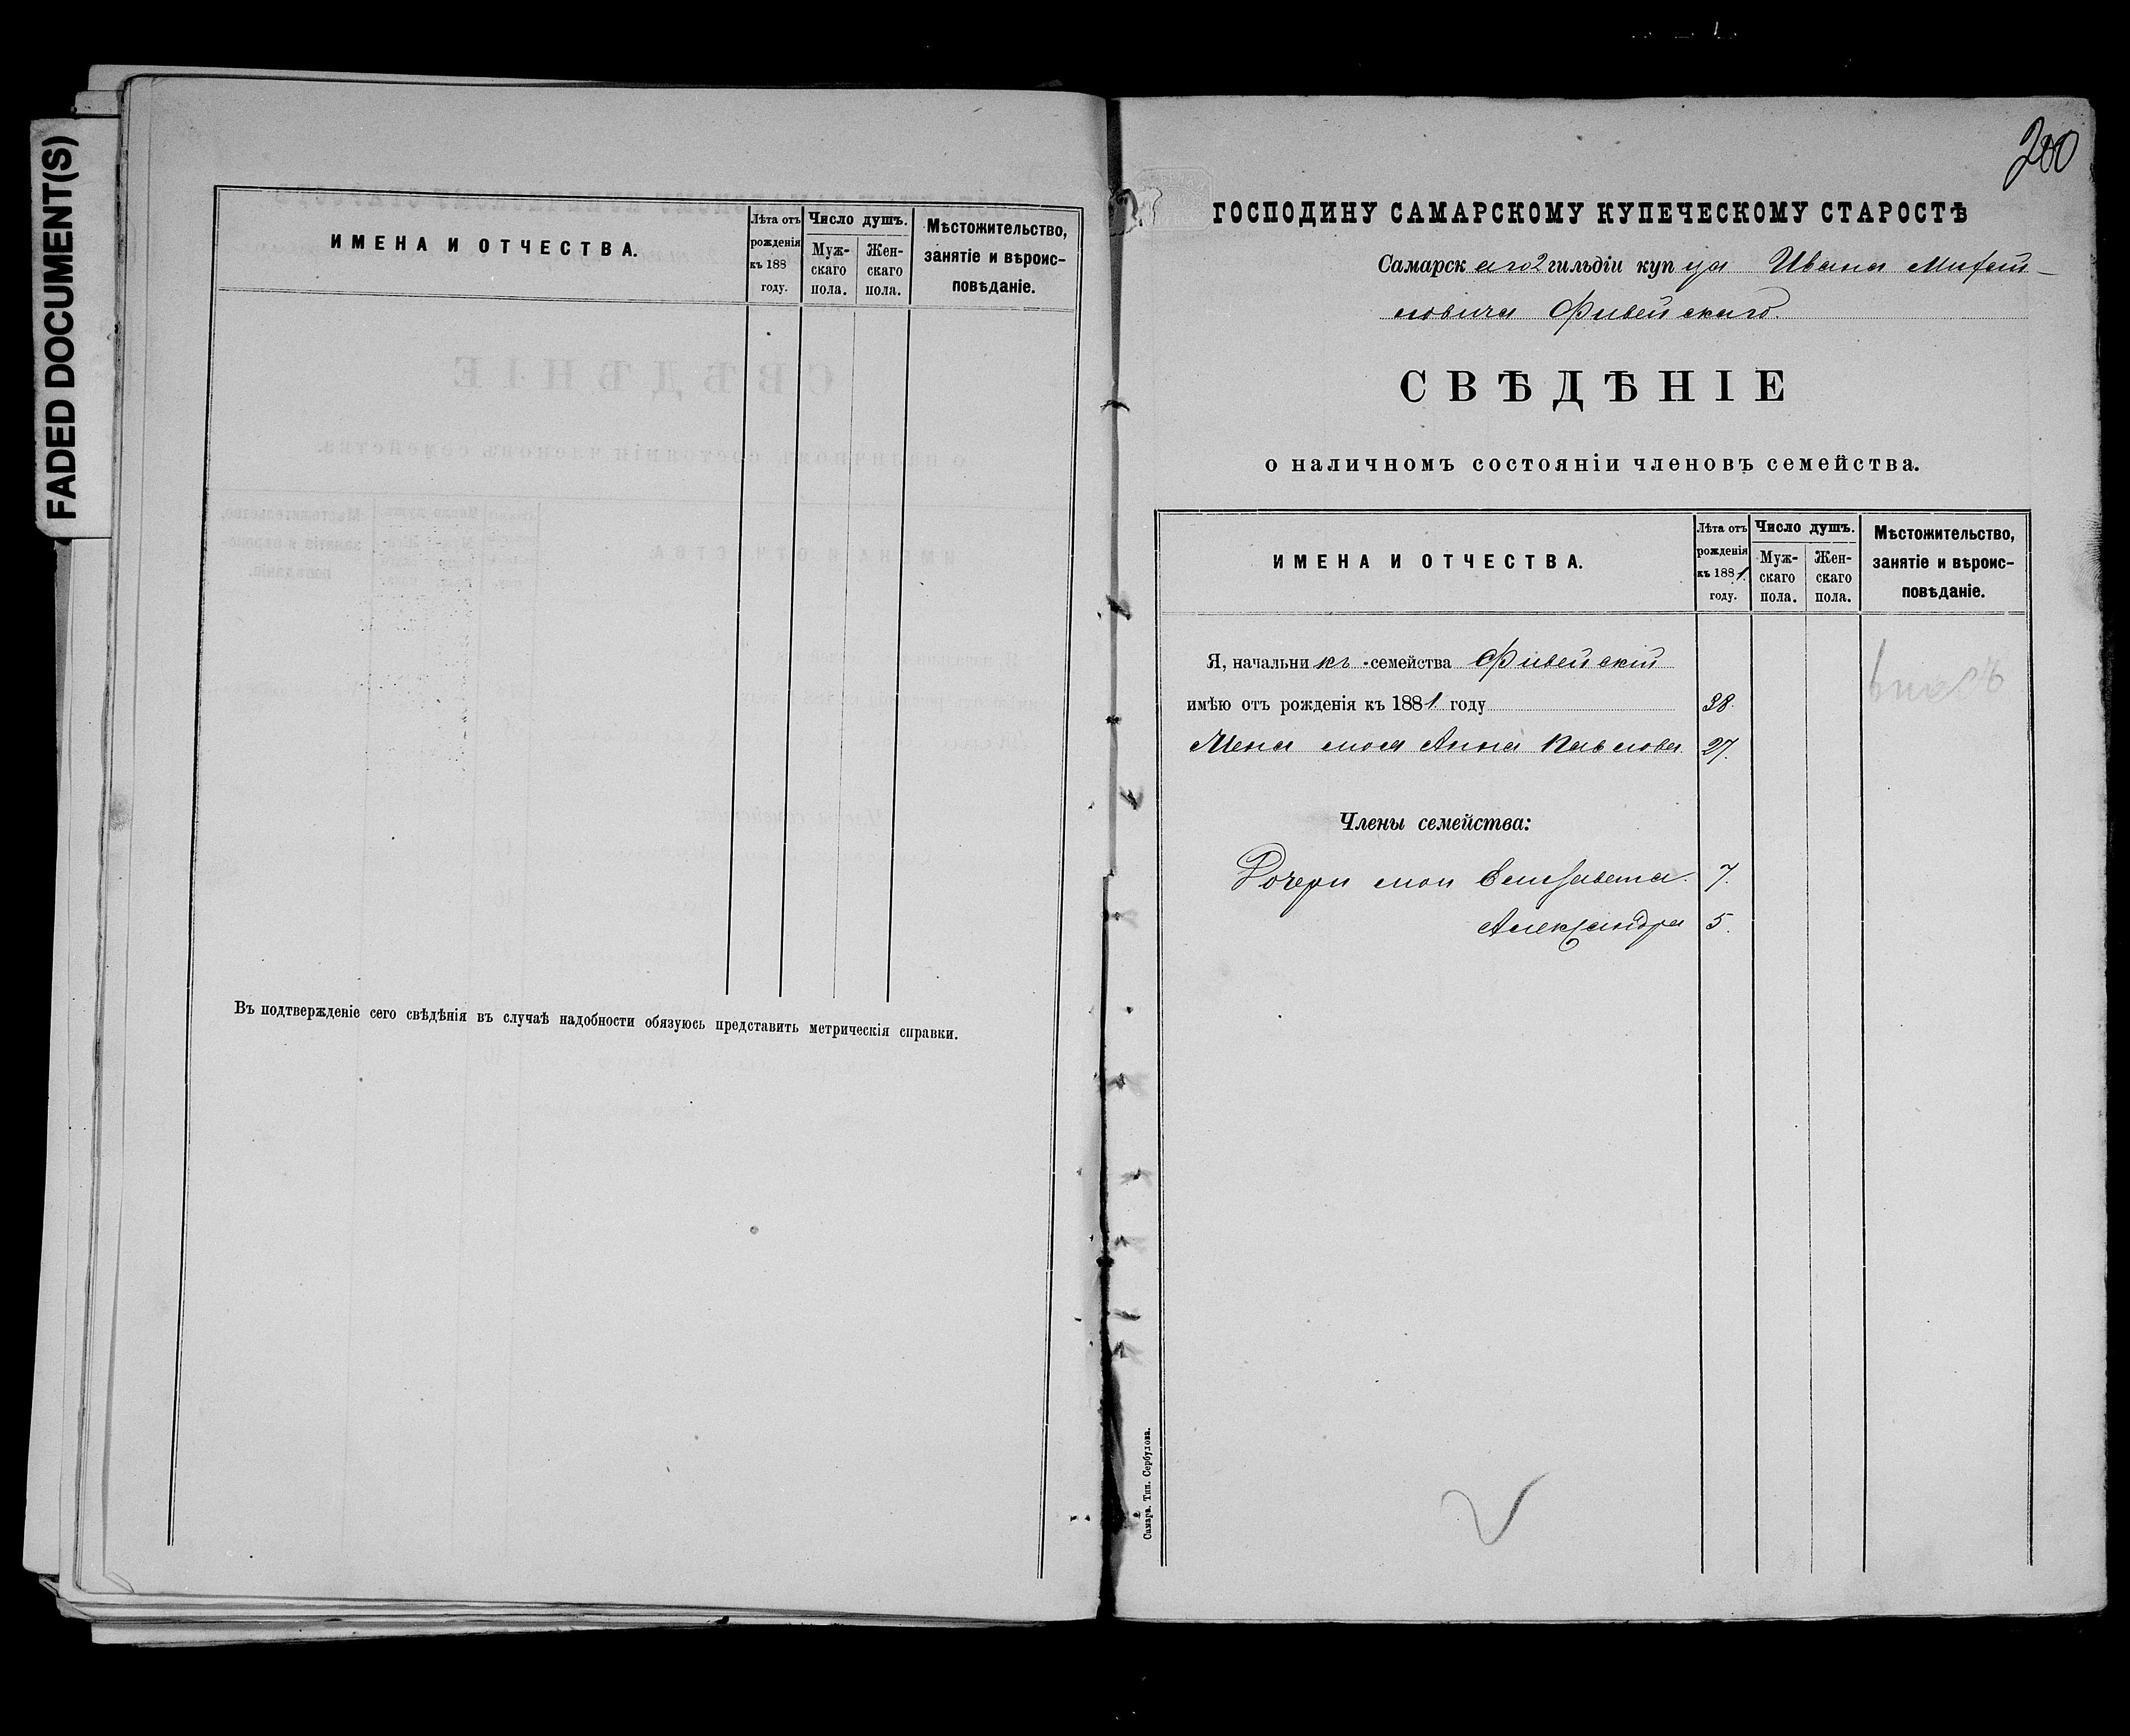 FADED DOCUMENT(S)
ИМЕНА И ОТЧЕСТВА.
Лѣта отъ рожденія къ 188 году.
Число душъ.
Мужскаго пола.
Женскаго пола.
Мѣстожительство, занятіе и вѣроисповѣданіе.
Въ подтвержденіе сего свѣдѣнія въ случаѣ надобности обязуюсь представить метрическія справки.
200
ГОСПОДИНУ САМАРСКОМУ КУПЕЧЕСКОМУ СТАРОСТѢ
Самарскаго 2 гильдіи купца Ивана Михай-
ловича Фивейскаго.
СВѢДѢНІЕ
о наличномъ состояніи членовъ семейства.
ИМЕНА И ОТЧЕСТВА.
Лѣта отъ рожденія къ 1881. году.
Число душъ.
Муж-скаго пола.
Жен-скаго пола.
Мѣстожительство, занятіе и вѣроис-повѣданіе.
Я, начальникъ семейства Фивейскій
имѣю отъ рожденія къ 1881 году 38.
Жена моя Анна Павлова. 27.
Члены семейства:
Дочери мои Елисавета. 7.
Александра 5.
Самара. Тип. Сербулова.